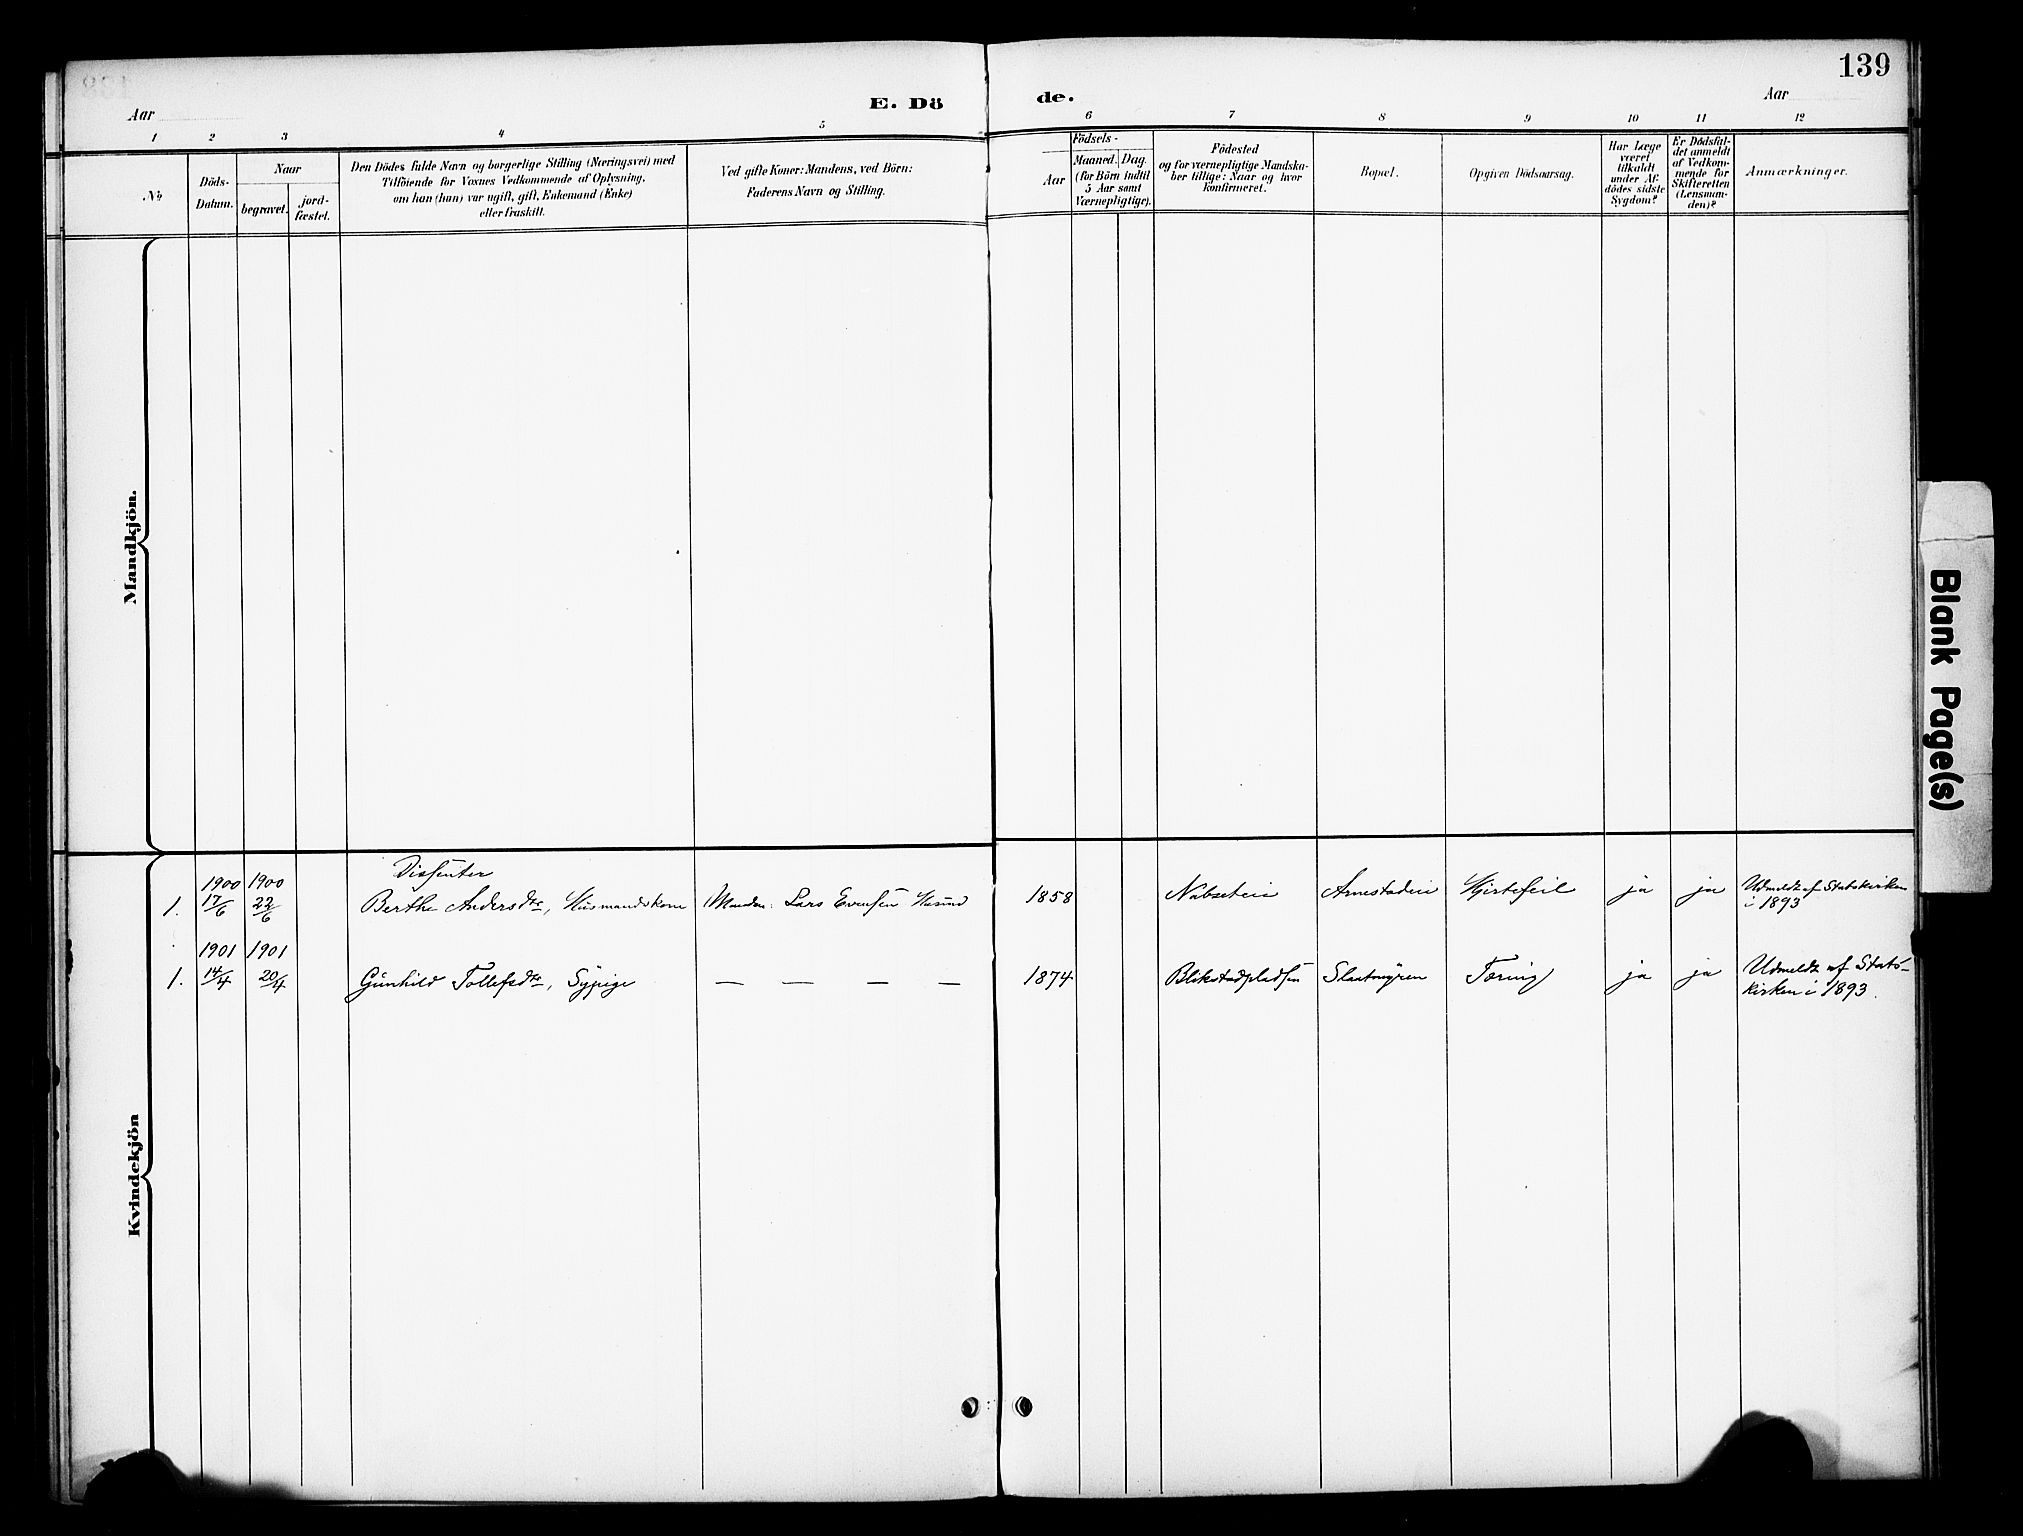 139
Aar
E. Dö
de.
Aar
1 2 3 4 5 6 7 8 9 10 11 12
No
Döds-
Datum.
Naar
begravet.
jord-
fæstet.
Den Dödes fulde Navn og borgerlige Stilling (Næringsvei) med
Tilföiende for Voxnes Vedkommende af Oplysning,
om han (hun) var ugift, gift, Enkemand (Enke)
eller fraskilt.
Ved gifte Koner: Mandens, ved Börn:
Faderens Navn og Stilling.
Födsels-
Aar
Maaned. Dag.
(for Börn indtil
5 Aar samt
Værnepligtige).
Födested
og for værnepligtige Mandska-
ber tillige: Naar og hvor
konfirmeret.
Bopæl.
Opgiven Dödsaarsag.
Har Læge
været
tilkaldt
under Af-
dödes sidste
Sygdom?
Er Dödsfal-
det anmeldt
af Vedkom-
mende for
Skifteretten
(Lensman-
den)?
Anmærkninger.
Mandkjön.
Kvindekjön
Dissenter
1900 1900
1. 17/6 22/6 Berthe Andersdtr, Husmandskone Manden: Lars Evensen 1858 Arnestadeie Hjertefeil ja ja Udmeldt af Statskirken
i 1893
1901 1901
1. 14/4 20/4 Gunhild Tollefsdtr, Sypige — — — — 1874 Blikstadpladsen Slaatmyren Tæring ja ja Udmeldt af Stats-
kirken i 1893.
Blank Page(s)